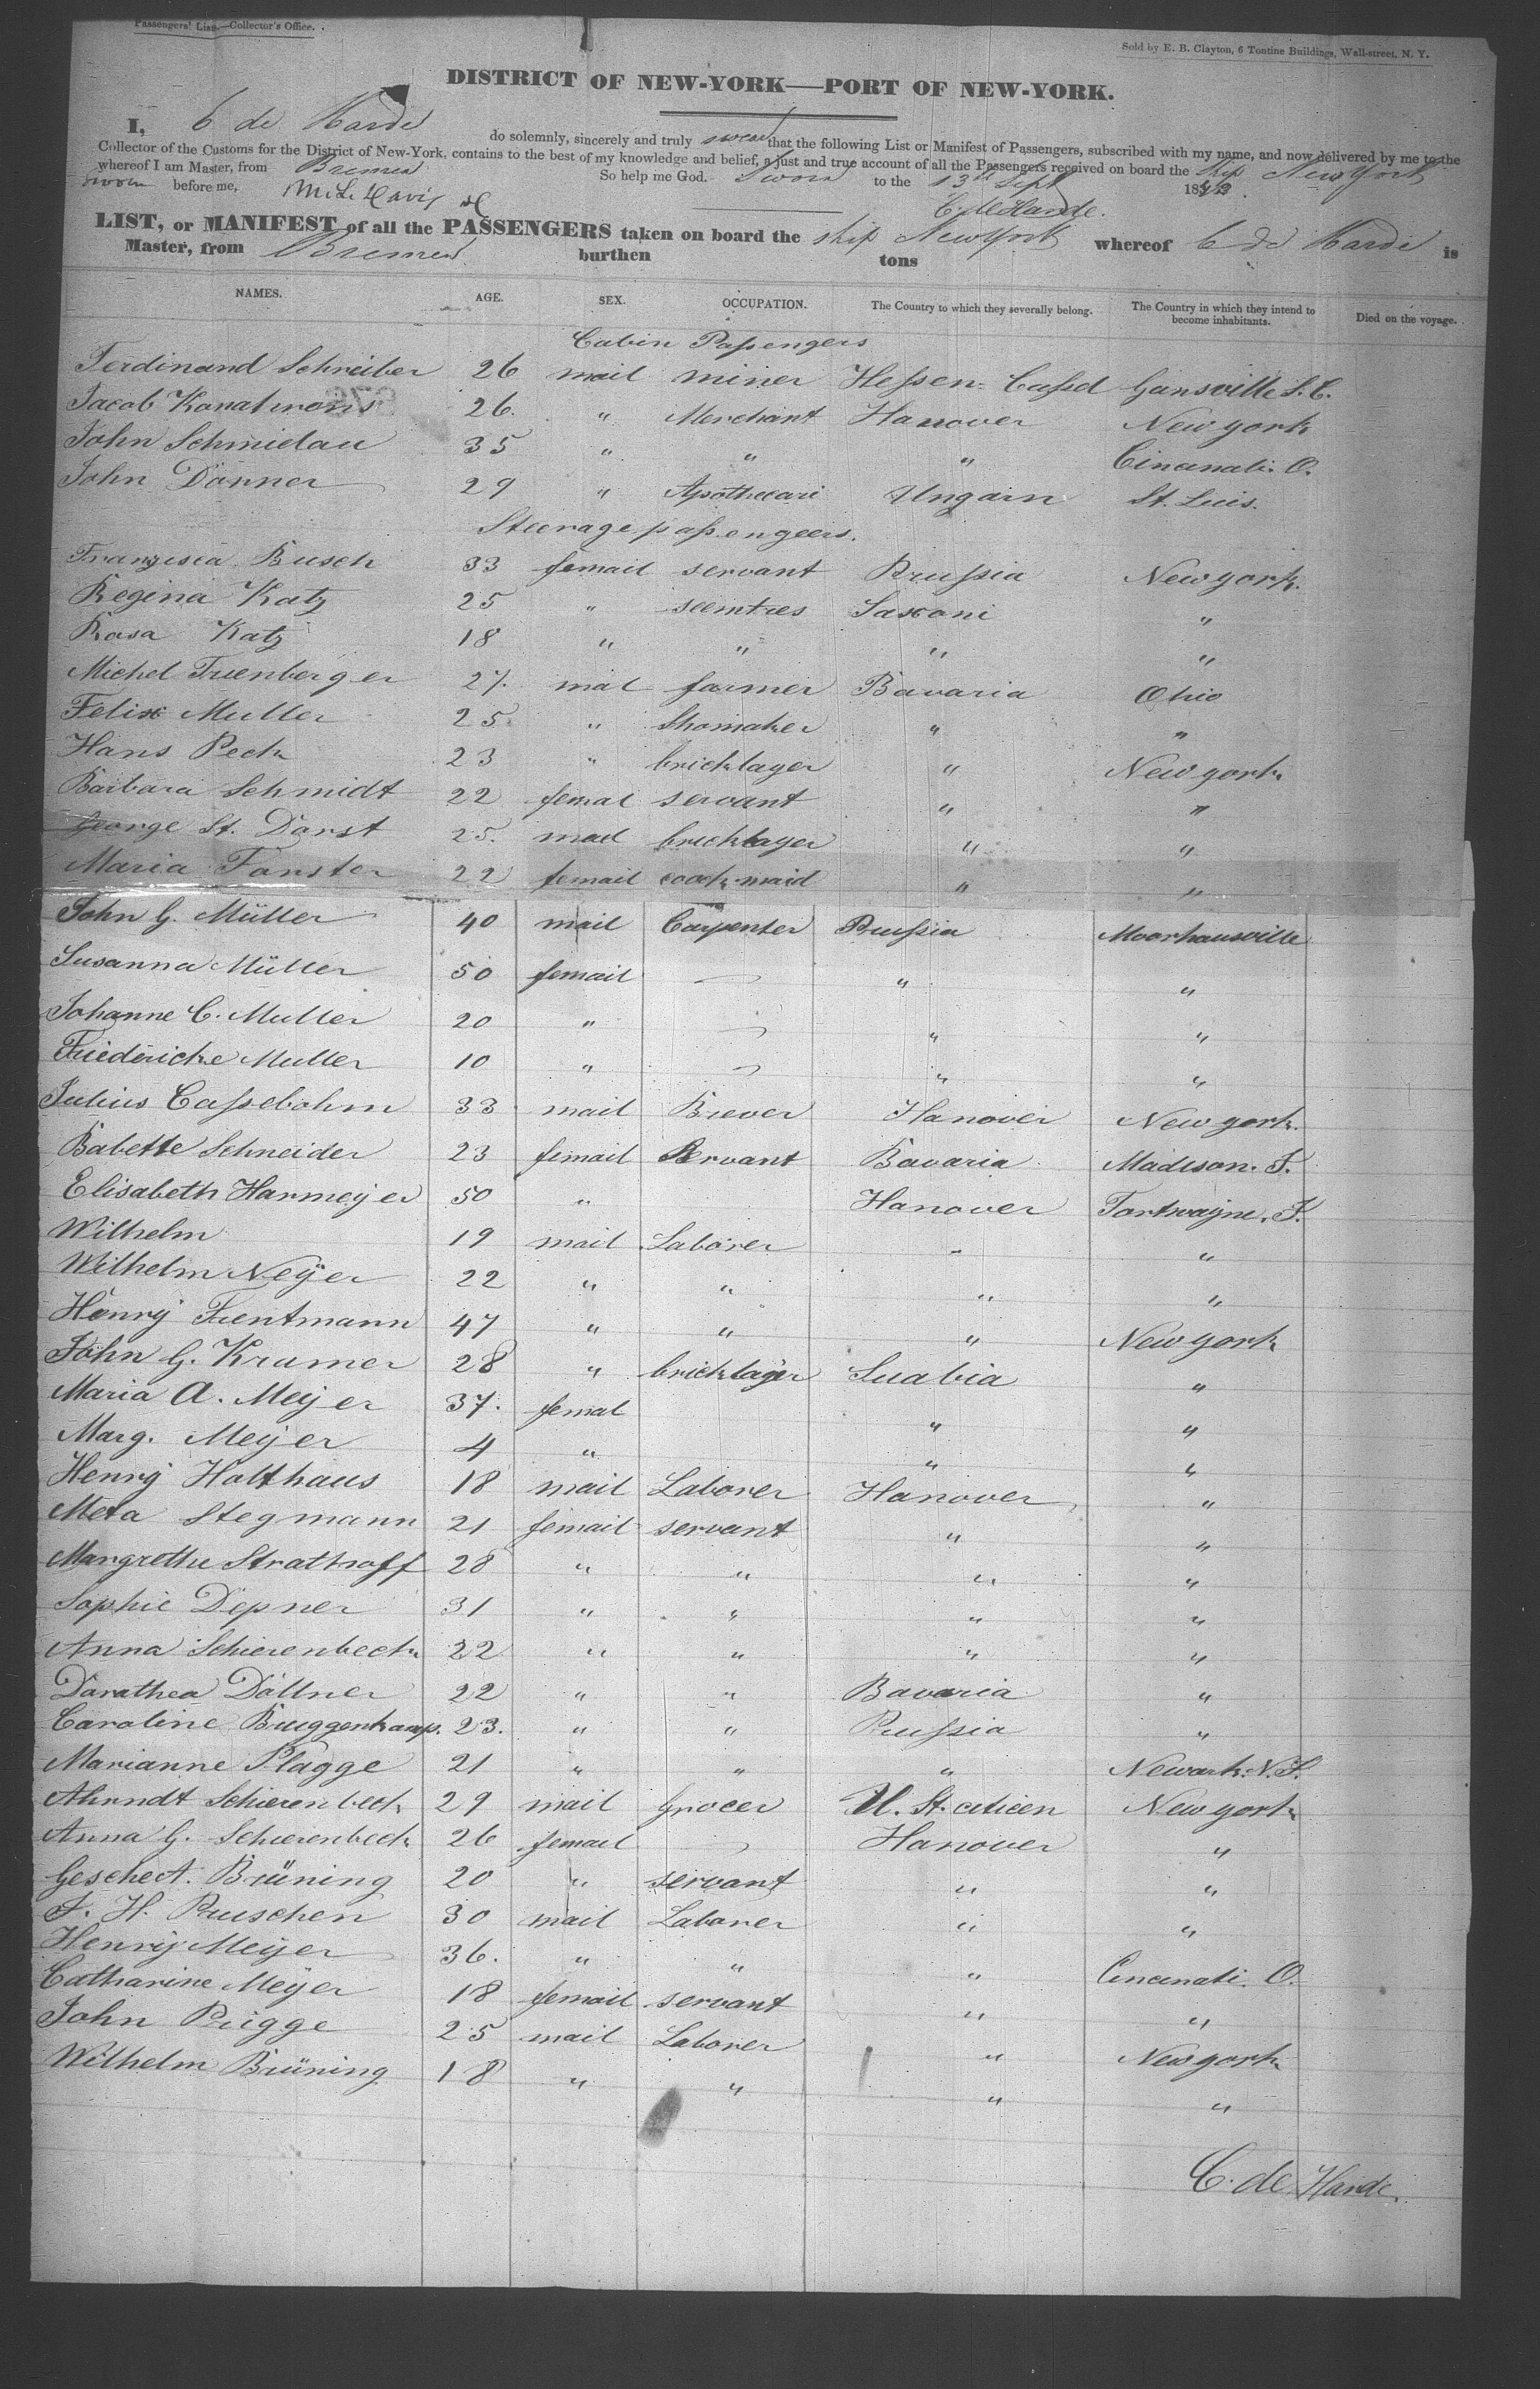 Passengers' List.—Collector's Office.
Sold by E. B. Clayton, 6 Tontine Buildings, Wall-street, N. Y.
DISTRICT OF NEW-YORK—PORT OF NEW-YORK.
I, C de Harde do solemnly, sincerely and truly swear that the following List or Manifest of Passengers, subscribed with my name, and now delivered by me to the
Collector of the Customs for the District of New-York, contains to the best of my knowledge and belief, a just and true account of all the Passengers received on board the Ship New York
whereof I am Master, from Bremen So help me God.
Sworn before me, Sworn to the 13th Sept 1843.
C. de Harde.
LIST, or MANIFEST of all the PASSENGERS taken on board the ship New York whereof C de Harde is
Master, from Bremen burthen tons
NAMES. AGE. SEX. OCCUPATION. The Country to which they severally belong. The Country in which they intend to become inhabitants. Died on the voyage.
Cabin Passengers
Ferdinand Schreiber 26 mail miner Hessen-Cassel Gansville S.C.
Jacob 26. " Merchant Hanover New york
John Schmidau 35 " " " Cincinati. O.
John Dänner 29 " Apothecari Ungarn St. Luis.
Steerage passengeers.
Franzisca Busch 33 femail servant Prussia New york.
Regina Katz 25 " seemtres Saxoni "
Rosa Katz 18 " " " "
Michel Truenberger 27. mal farmer Bavaria Ohio
Felix Muller 25 " Shomaker " "
Hans Peck 23 " bricklayer " New york
Barbara Schmidt 22 femal servant " "
George St. Darst 25. mail bricklayer " "
Maria Forster 22 femail cook-maid " "
John G. Müller 40 mail Carpenter Prussia Moorhausville
Susanna Müller 50 femail — " "
Johanne C. Muller 20 " — " "
Friedericke Muller 10 " — " "
Julius Cassebohm 33 mail Brever Hanover New york.
Babette Schneider 23 femail Servant Bavaria Madison. J.
Elisabeth Harmeyer 50 " Hanover Fortwayne. J.
Wilhelm 19 mail Laborer " "
Wilhelm Neyer 22 " " " "
Henry Fuentmann 47 " " " New york
John G. Kramer 28 " bricklayer Suabia "
Maria A. Meyer 37. femal " "
Marg. Meyer 4 " " "
Henry Holthaus 18 mail Laborer Hanover "
Meta Stegmann 21 femail servant " "
Margrethe Strathoff 28 " " " "
Sophie Depner 31 " " " "
Anna Schierenbeck 22 " " " "
Darathea Döllner 22 " " Bavaria "
Caroline Bruggenkamp. 23. " " Prussia "
Marianne Plagge 21 " " " Newark. N.J.
Ahrndt Schierenbeck 29 mail Grocer U. St. citicen New york
Anna G. Schierenbeck 26 femail — Hanover "
Gesche A. Brüning 20 " servant " "
J. H. Pruschen 30 mail Laborer " "
Henry Meyer 36. " " " Cincinati. O.
Catharine Meyer 18 femail servant " "
John Prigge 25 mail Laborer " New york
Wilhelm Brüning 18 " " " "
C. de Harde.